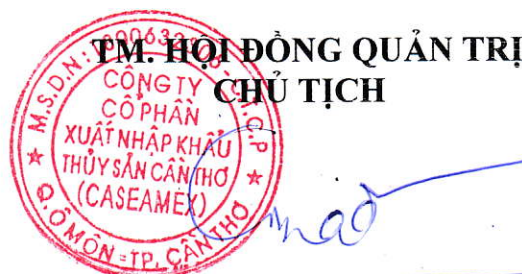 TM. HỘI ĐỒNG QUẢN TRỊ
CHỦ TỊCH
CÔNG TY
CỔ PHẦN
XUẤT NHẬP KHẨU
THỦY SẢN CẦN THƠ
(CASEAMEX)
Q. Ô MÔN - TP. CẦN THƠ